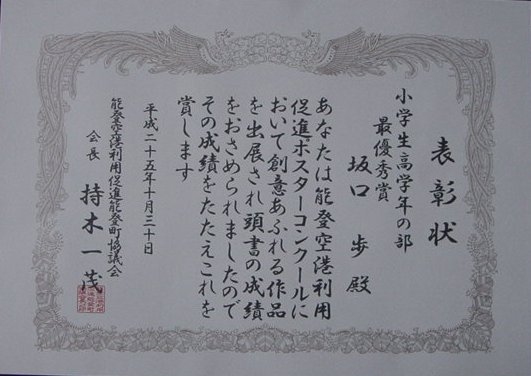 表彰状
小学生高学年の部
最優秀賞
坂口 歩 殿
あなたは能登空港利用
促進ポスターコンクールに
おいて創意あふれる作品
を出展され頭書の成績
をおさめられましたので
その成績をたたえこれを
賞します
平成二十五年十月三十日
能登空港利用促進能登町協議会
会長 持木一茂